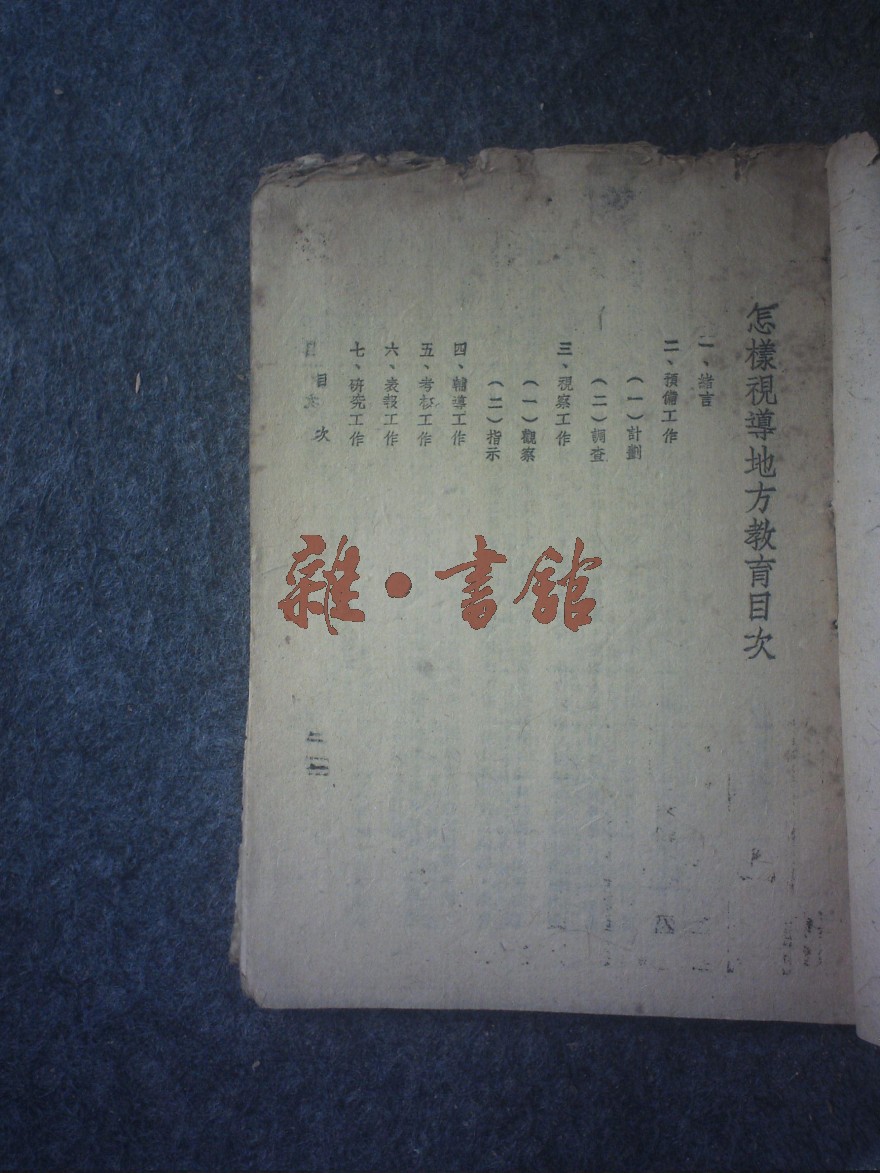 怎樣視導地方教育目次
一、緒言
二、預備工作
（一）計劃
（二）調查
三、視察工作
（一）觀察
（二）指示
四、輔導工作
五、考核工作
六、表報工作
七、研究工作
目次
雜·書館